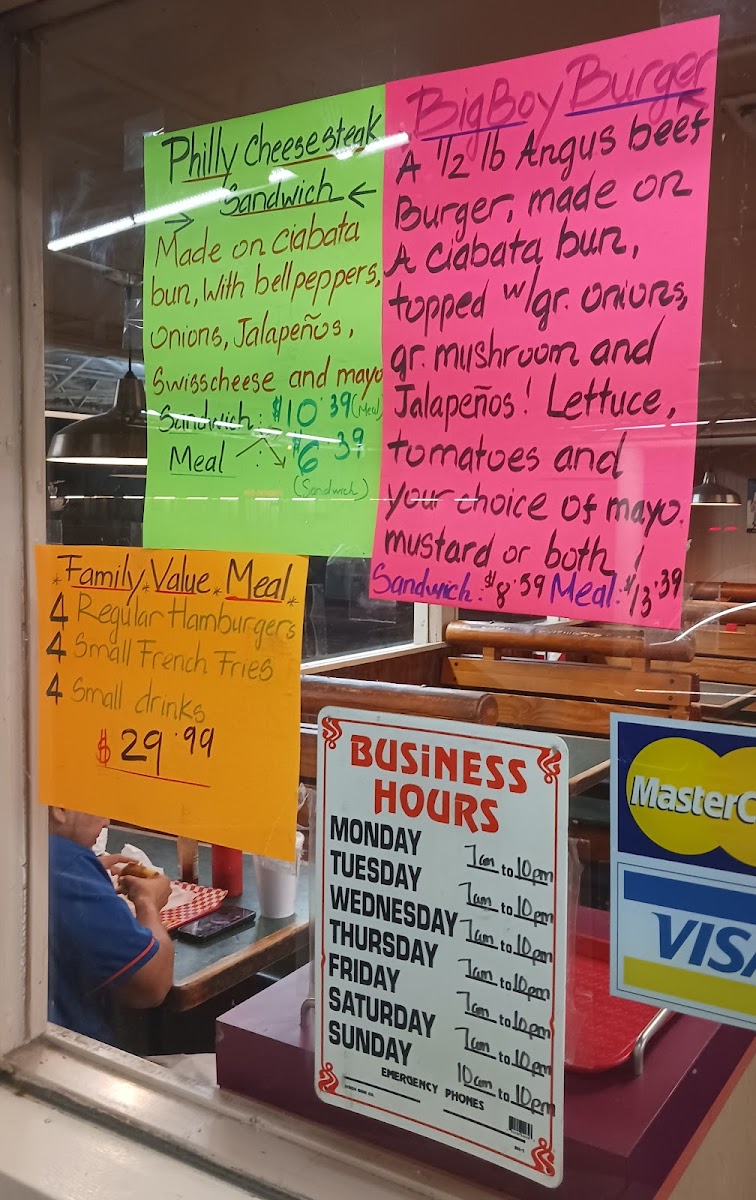 Philly Cheesesteak
Sandwich
Made on ciabata
bun, With bellpeppers,
onions, Jalapeños,
Swisscheese and mayo
Sandwich: $10.39 (Meal)
Meal : $6.39
(Sandwich)
BigBoy Burger
A 1/2 lb Angus beef
Burger, made on
A ciabata bun,
topped w/gr. onions,
gr. mushroom and
Jalapeños! Lettuce,
tomatoes and
your choice of mayo.
mustard or both!
Sandwich: $8.59 Meal: $13.39
*Family*Value*Meal*
4 Regular Hamburgers
4 Small French Fries
4 Small drinks
$29.99
BUSINESS
HOURS
MONDAY 7am to 10pm
TUESDAY 7am to 10pm
WEDNESDAY 7am to 10pm
THURSDAY 7am to 10pm
FRIDAY 7am to 10pm
SATURDAY 7am to 10pm
SUNDAY 10am to 10pm
EMERGENCY PHONES
MasterC
VISA